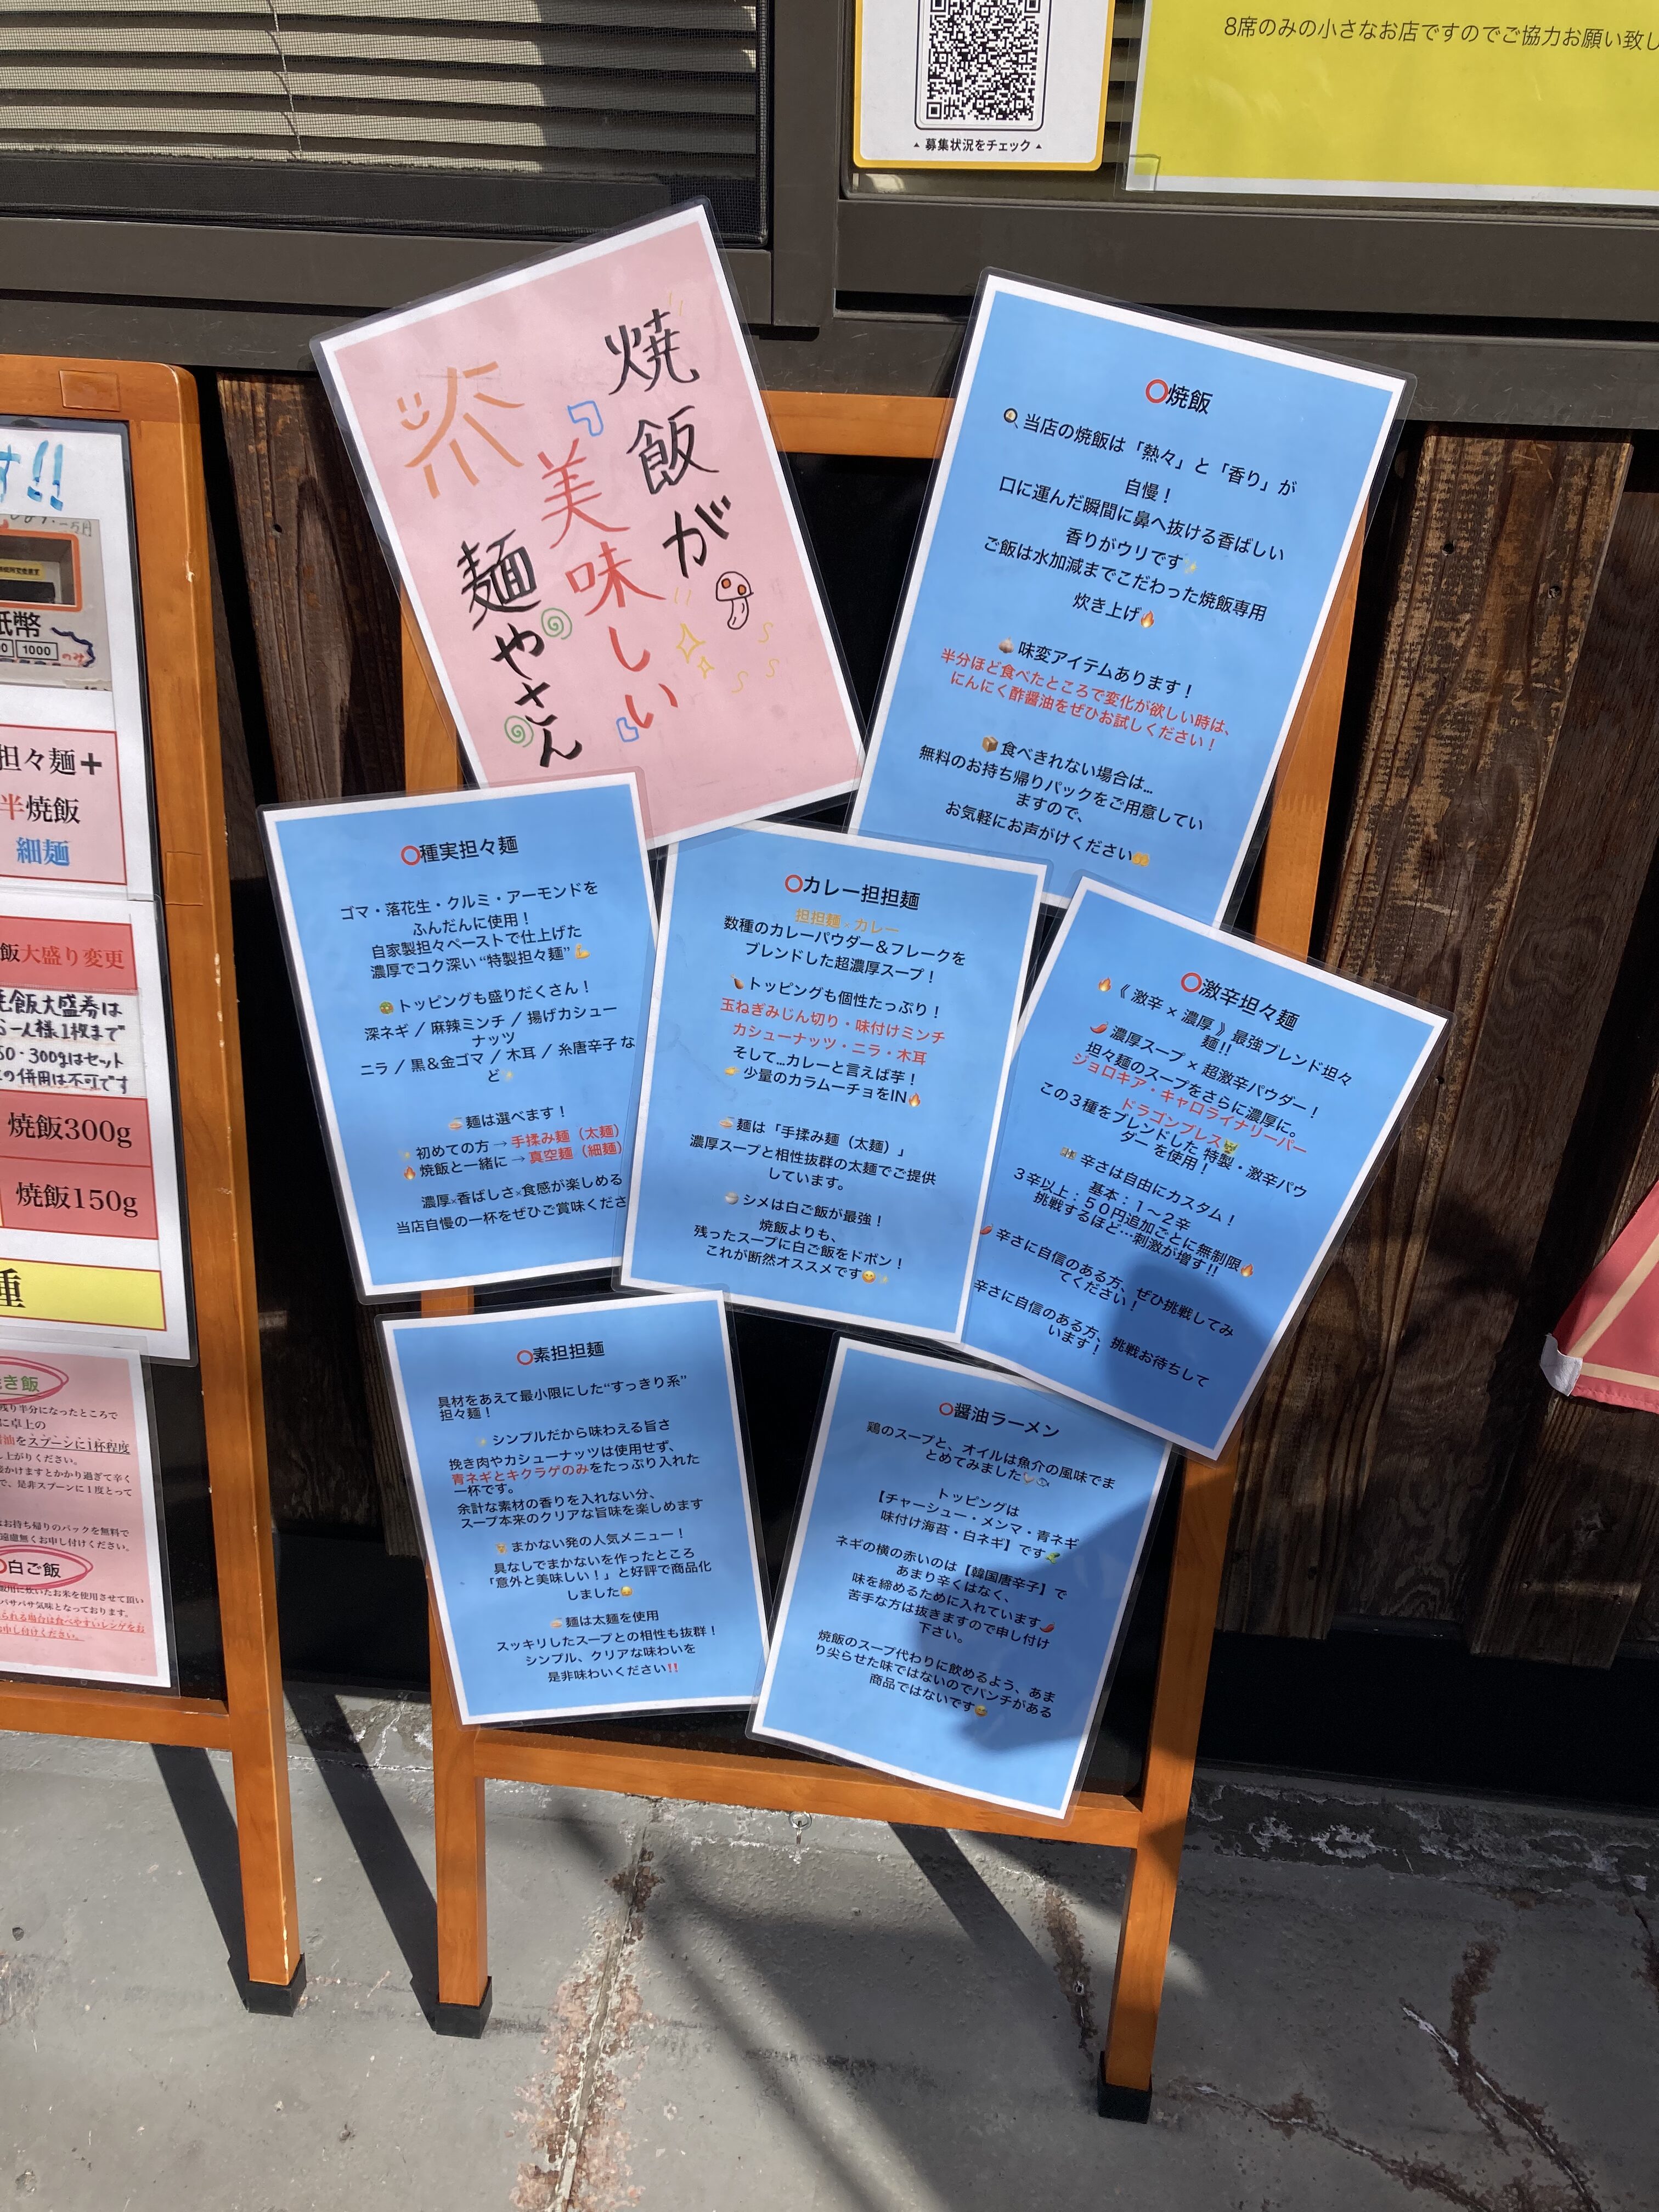 ▲ 募集状況をチェック ▲
8席のみの小さなお店ですのでご協力お願い致し
焼飯が
美味しい
麺やさん
⭕焼飯
🍳当店の焼飯は「熱々」と「香り」が
自慢！
口に運んだ瞬間に鼻へ抜ける香ばしい
香りがウリです✨
ご飯は水加減までこだわった焼飯専用
炊き上げ🔥
🧄 味変アイテムあります！
半分ほど食べたところで変化が欲しい時は、
にんにく酢醤油をぜひお試しください！
📦 食べきれない場合は…
無料のお持ち帰りパックをご用意してい
ますので、
お気軽にお声がけください🤗
⭕種実担々麺
ゴマ・落花生・クルミ・アーモンドを
ふんだんに使用！
自家製担々ペーストで仕上げた
濃厚でコク深い “特製担々麺” 💪
トッピングも盛りだくさん！
深ネギ ／ 麻辣ミンチ ／ 揚げカシュー
ナッツ
ニラ ／ 黒＆金ゴマ ／ 木耳 ／ 糸唐辛子 な
ど✨
🍜 麺は選べます！
✨ 初めての方 → 手揉み麺（太麺）
🔥 焼飯と一緒に → 真空麺（細麺）
濃厚×香ばしさ×食感が楽しめる
当店自慢の一杯をぜひご賞味くださ
⭕カレー担担麺
担担麺 × カレー
数種のカレーパウダー＆フレークを
ブレンドした超濃厚スープ！
🌶️トッピングも個性たっぷり！
玉ねぎみじん切り・味付けミンチ
カシューナッツ・ニラ・木耳
そして…カレーと言えば芋！
👉 少量のカラムーチョをIN🔥
🍜 麺は「手揉み麺（太麺）」
濃厚スープと相性抜群の太麺でご提供
しています。
🍚 シメは白ご飯が最強！
焼飯よりも、
残ったスープに白ご飯をドボン！
これが断然オススメです😋✨
⭕激辛担々麺
🔥《 激辛 × 濃厚 》最強ブレンド担々
麺‼
🌶️ 濃厚スープ × 超激辛パウダー！
担々麺のスープをさらに濃厚に。
ジョロキア・キャロライナリーパー
ドラゴンブレス🐲
この３種をブレンドした 特製・激辛パウ
ダー を使用！
辛さは自由にカスタム！
基本：１～２辛
３辛以上：５０円追加ごとに無制限🔥
挑戦するほど…刺激が増す‼
🌶️ 辛さに自信のある方、ぜひ挑戦してみ
てください！
辛さに自信のある方、挑戦お待ちして
います！
⭕素担担麺
具材をあえて最小限にした“すっきり系”
担々麺！
✨ シンプルだから味わえる旨さ
挽き肉やカシューナッツは使用せず、
青ネギとキクラゲのみをたっぷり入れた
一杯です。
余計な素材の香りを入れない分、
スープ本来のクリアな旨味を楽しめます
まかない発の人気メニュー！
具なしでまかないを作ったところ
「意外と美味しい！」と好評で商品化
しました😄
🍜 麺は太麺を使用
スッキリしたスープとの相性も抜群！
シンプル、クリアな味わいを
是非味わいください‼️
⭕醤油ラーメン
鶏のスープと、オイルは魚介の風味でま
とめてみました🐓🐟
トッピングは
【チャーシュー・メンマ・青ネギ
味付け海苔・白ネギ】です🌿
ネギの横の赤いのは【韓国唐辛子】で
あまり辛くはなく、
味を締めるために入れています🌶️
苦手な方は抜きますので申し付け
下さい。
焼飯のスープ代わりに飲めるよう、あま
り尖らせた味ではないのでパンチがある
商品ではないです😅
す!!
一万円
紙幣
1000
のみ
担々麺＋
半焼飯
細麺
飯大盛り変更
焼飯大盛券は
一人様1枚まで
50・300gはセット
の併用は不可です
焼飯300g
焼飯150g
種
き飯
残り半分になったところで
に卓上の
油をスプーンに1杯程度
上がりください。
かけますとかかり過ぎて辛く
で、是非スプーンに１度とって
はお持ち帰りのパックを無料で
遠慮無くお申し付けください。
白ご飯
飯用に炊いたお米を使用させて頂い
パサパサ気味となっております。
られる場合は食べやすいレンゲをお
申し付けください。